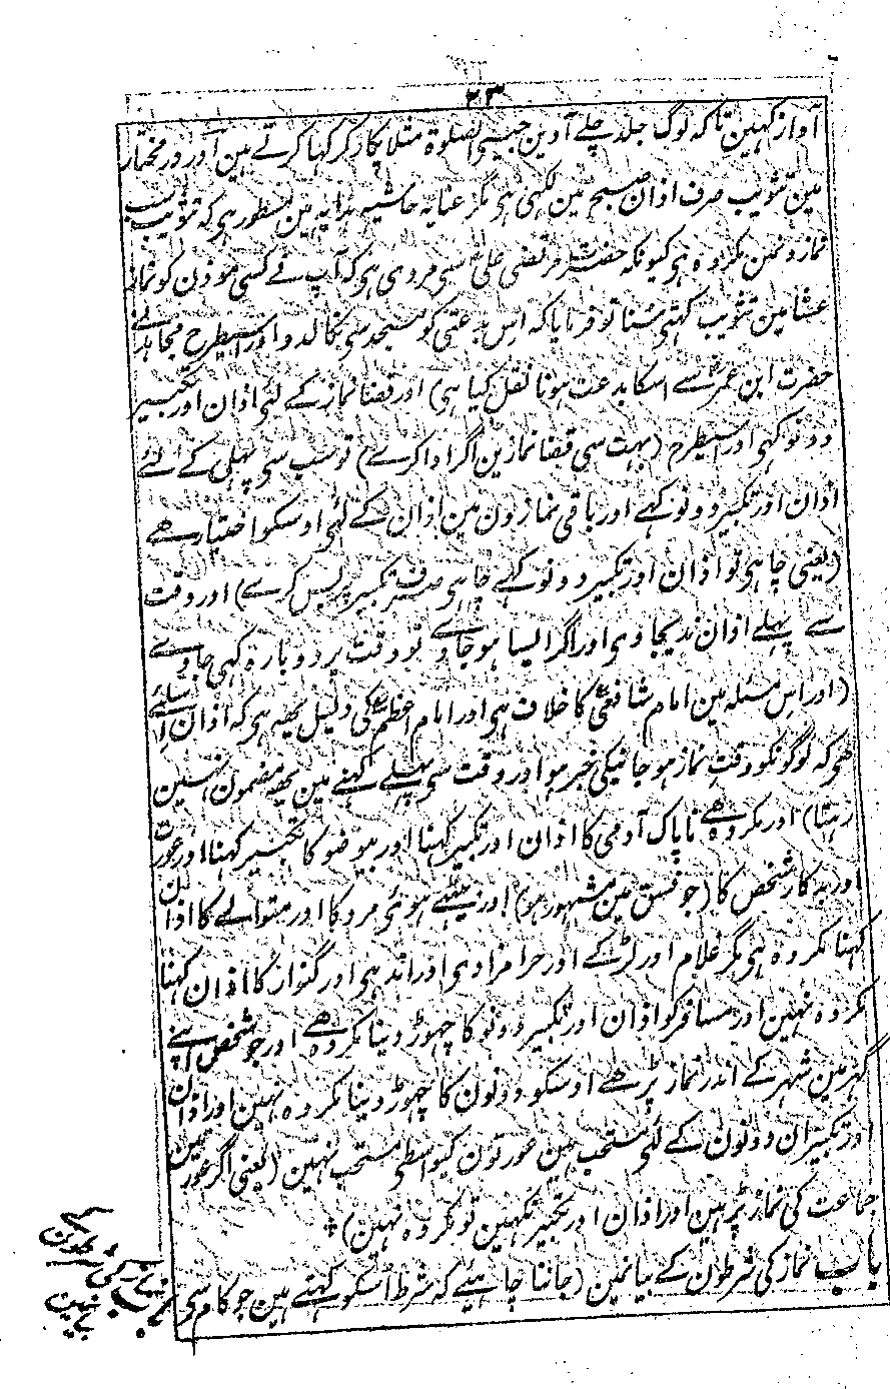 ۲۳
آواز کہین تاکہ لوگ جلد چلے آوین جیسے الصلوۃ مثلا پکار کر کہا کرتے ہین اور در مختار
مین تثویب صرف اذان صبح مین لکہی ہی مگر عنایہ حاشیہ ہدایہ مین مسطور ہی کہ تثویب سب
نمازونمین مکروہ ہی کیونکہ حضرت مرتضی علیؓ سی مروی ہی کہ آپ نے کسی موذن کو نماز
عشا مین تثویب کہتی سنا تو فرمایا کہ اس بدعتی کو مسجد سی نکالدو اور اسیطرح مجاہد نے
حضرت ابن عمرؓ سے اسکا بدعت ہونا نقل کیا ہی) اور قضا نماز کے لئی اذان اور تکبیر
دونو کہی اور اسیطرح (بہت سی قضا نمازین اگر ادا کرے) تو سب سی پہلی کے لئے
اذان اور تکبیر دونو کہے اور باقی نمازون مین اذان کے لئی اوسکو اختیار ہے
(یعنی چاہی تو اذان اور تکبیر دونو کہے چاہی صرف تکبیر پر بس کرے) اور وقت
سے پہلے اذان ندیجاوی اور اگر ایسا ہو جاوے تو وقت پر دوبارہ کہی جاوے
(اور اس مسئلہ مین امام شافعیؒ کا خلاف ہی اور امام اعظمؒ کی دلیل یہہ ہی کہ اذان اسلئے
ہی کہ لوگونکو وقت نماز ہو جانیکی خبر ہو اور وقت سی پہلے کہنے مین یہہ مضمون نہین
رہتا) اور مکروہ ہے ناپاک آدمی کا اذان اور تکبیر کہنا اور بیوضو کا تکبیر کہنا اور عورت
اور بدکار شخص کا (جو فسق مین مشہور ہو) اور بیٹھے ہوئی مرد کا اور متوالے کا اذان
کہنا مکروہ ہی مگر غلام اور لڑکے اور حرامزادی اور اندہی اور گنوار کا اذان کہنا
مکروہ نہین اور مسافر کو اذان اور تکبیر دونو کا چہوڑ دینا مکروہ ہے اور جو شخص اپنے
گہر مین شہر کے اندر نماز پڑہے اوسکو دونون کا چہوڑ دینا مکروہ نہین اور اذان
اور تکبیر ان دونون کے لئی مستحب ہین عورتون کیواسطی مستحب نہین (یعنی اگر عورتین
جماعت کی نماز پڑہین اور اذان اور تکبیر نکہین تو مکروہ نہین) ؞
باب نماز کی شرطون کے بیانمین (جاننا چاہیئے کہ شرط اُسکو کہتے ہین جو کام سی